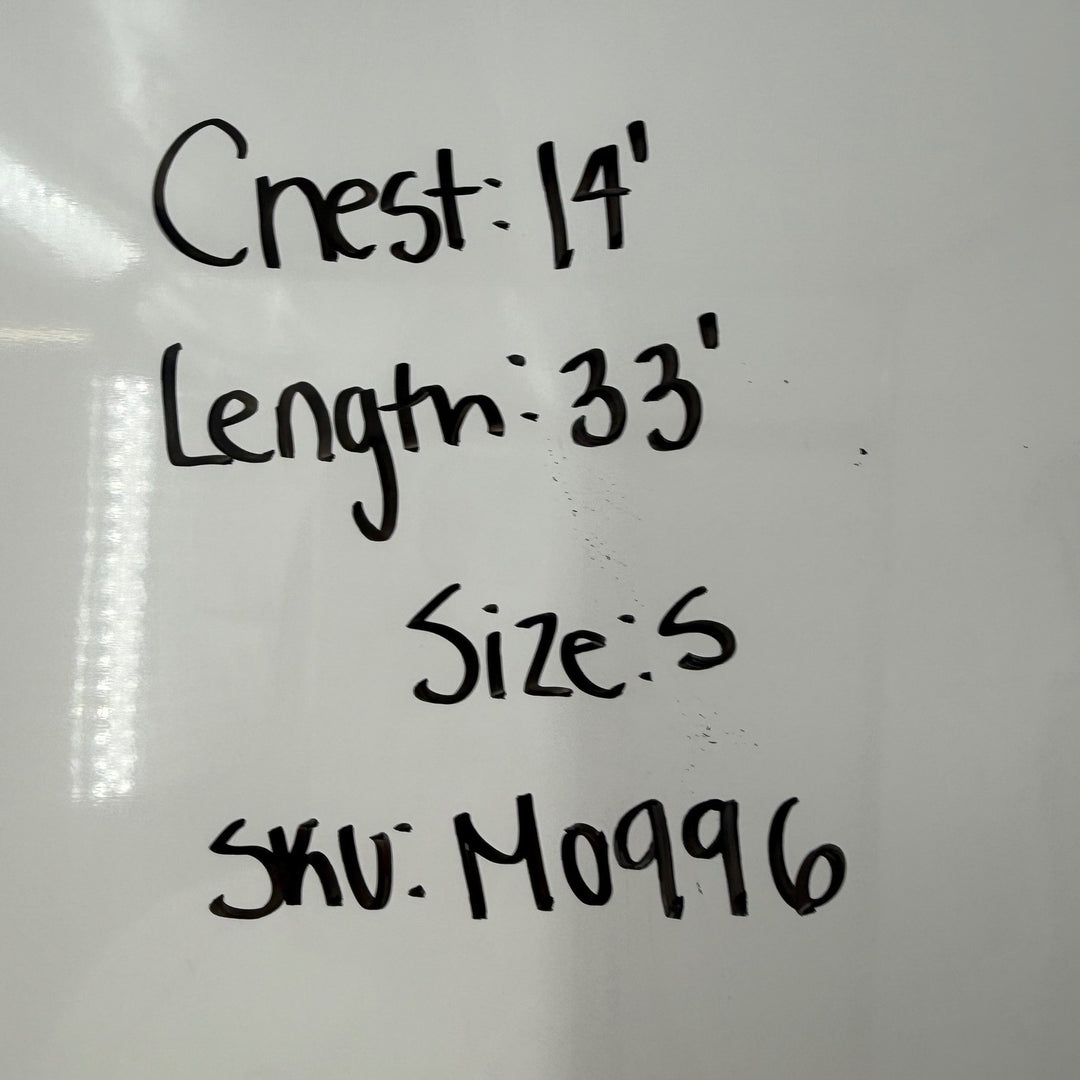 Chest: 14'
Length: 33'
Size: S
SKU: M0996